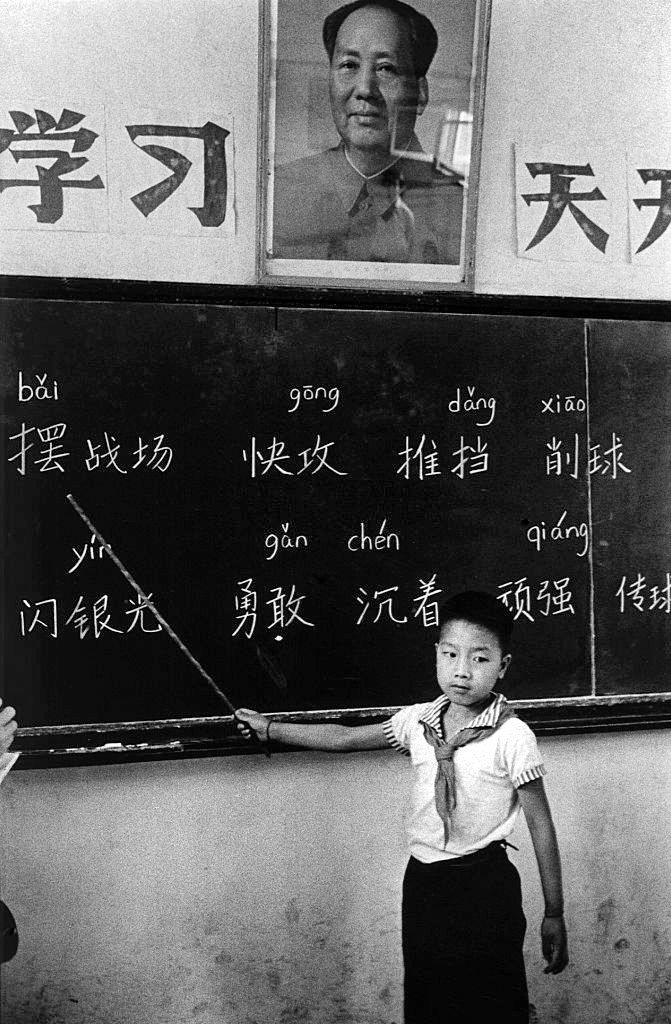 学习 天天
bǎi gōng dǎng xiāo
摆战场 快攻 推挡 削球
yín gǎn chén qiáng
闪银光 勇敢 沉着 顽强 传球